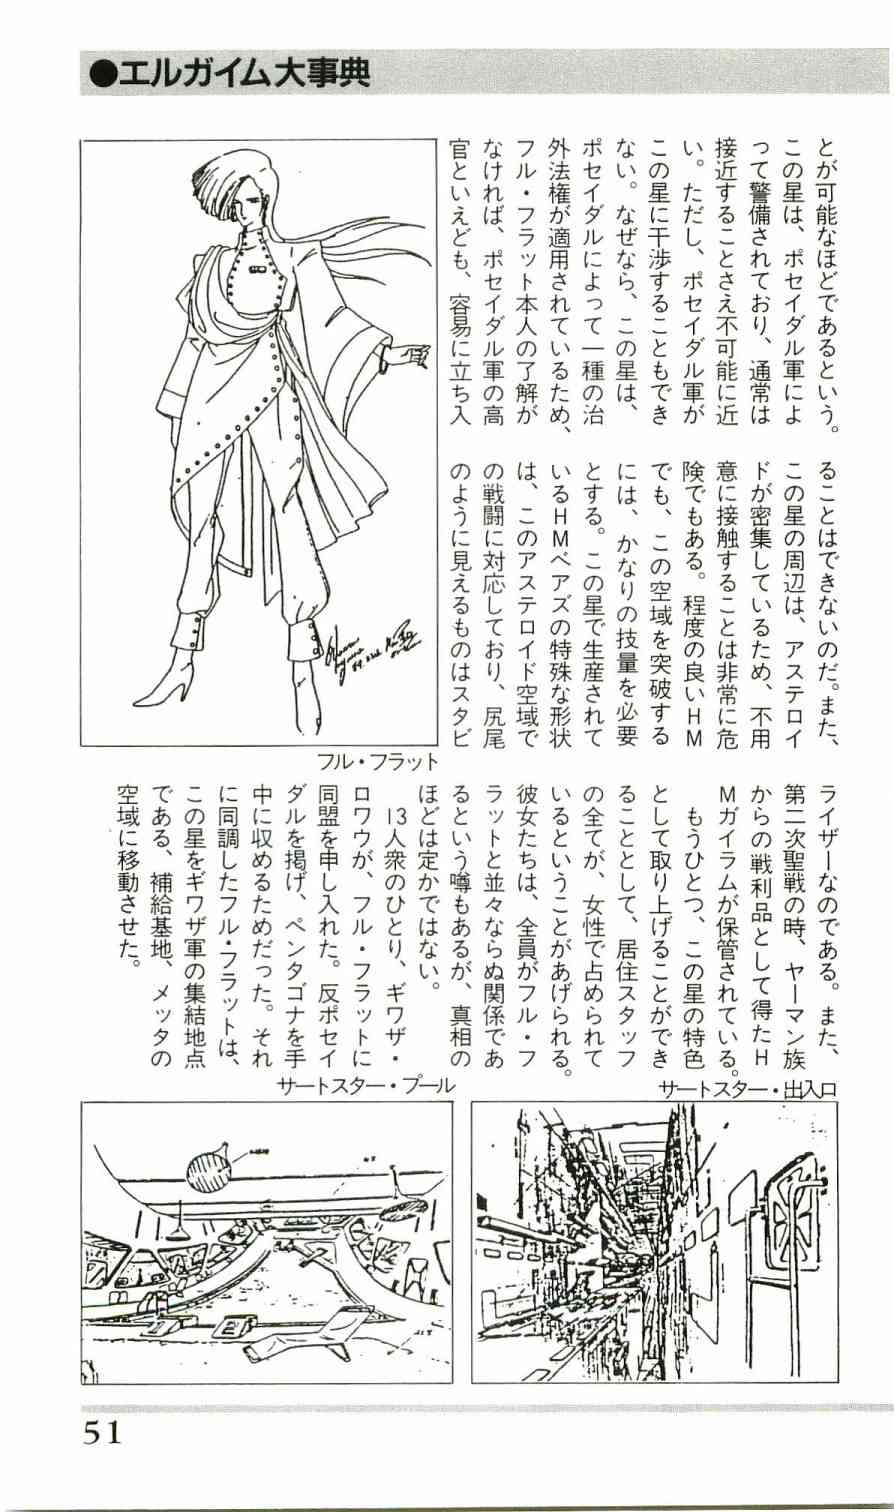 ●エルガイム大事典
とが可能なほどであるという。
この星は、ポセイダル軍によ
って警備されており、通常は
接近することさえ不可能に近
い。ただし、ポセイダル軍が
この星に干渉することもでき
ない。なぜなら、この星は、
ポセイダルによって一種の治
外法権が適用されているため、
フル・フラット本人の了解が
なければ、ポセイダル軍の高
官といえども、容易に立ち入
ることはできないのだ。また、
この星の周辺は、アステロイ
ドが密集しているため、不用
意に接触することは非常に危
険でもある。程度の良いHM
でも、この空域を突破する
には、かなりの技量を必要
とする。この星で生産されて
いるHMベアズの特殊な形状
は、このアステロイド空域で
の戦闘に対応しており、尻尾
のように見えるものはスタビ
ライザーなのである。また、
第二次聖戦の時、ヤーマン族
からの戦利品として得たH
Mガイラムが保管されている。
もうひとつ、この星の特色
として取り上げることができ
ることとして、居住スタッフ
の全てが、女性で占められて
いるということがあげられる。
彼女たちは、全員がフル・フ
ラットと並々ならぬ関係であ
るという噂もあるが、真相の
ほどは定かではない。
13人衆のひとり、ギワザ・
ロワウが、フル・フラットに
同盟を申し入れた。反ポセイ
ダルを掲げ、ペンタゴナを手
中に収めるためだった。それ
に同調したフル・フラットは、
この星をギワザ軍の集結地点
である、補給基地、メッタの
空域に移動させた。
フル・フラット
サートスター・出入口
サートスター・プール
1 2
51